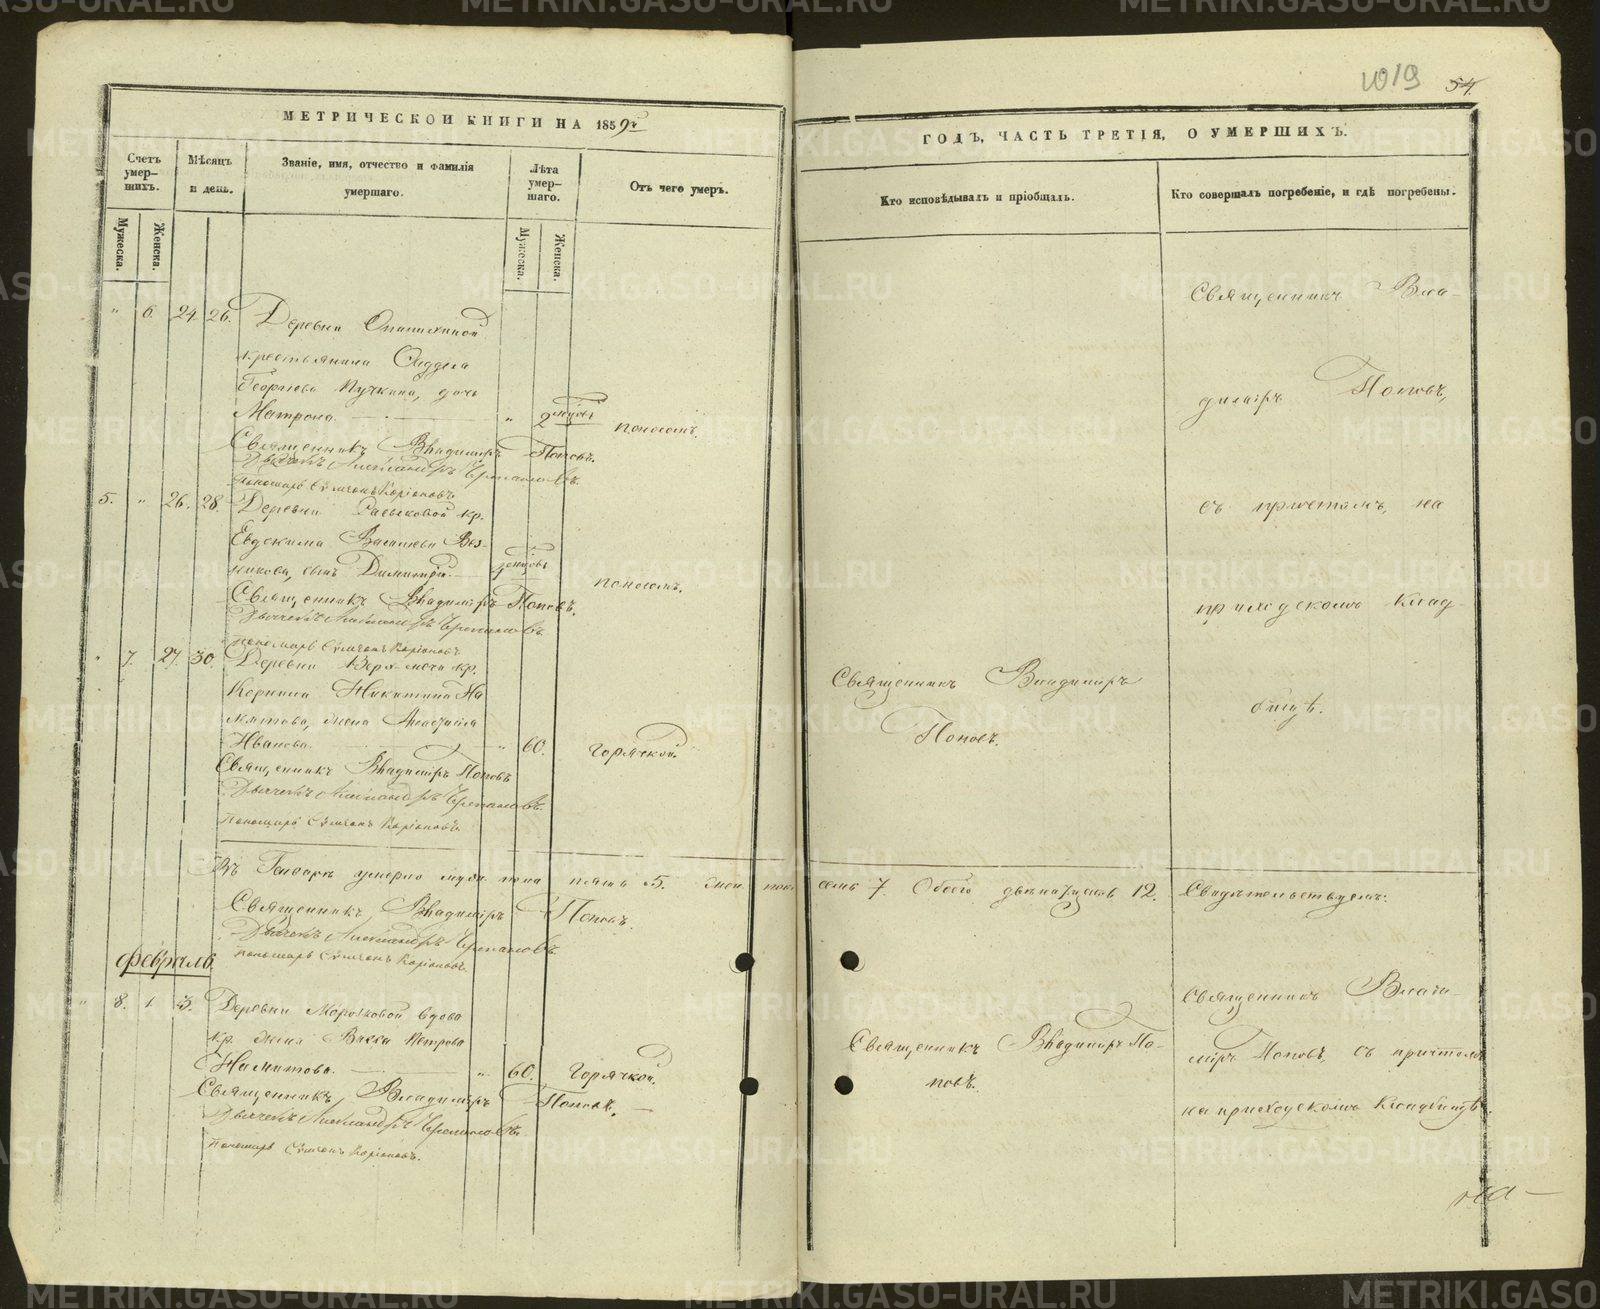 МЕТРИЧЕСКОЙ КНИГИ НА 1859 г
Счетъ умер-шихъ.
Мужеска.
Женска.
Мѣсяцъ и день.
Званіе, имя, отчество и фамилія умершаго.
Лѣта умер-шаго.
Мужеска.
Женска.
Отъ чего умеръ.
" 6. 24. 26. Деревни
крестьянина
Георгіева Пучкина, дочь
Матрона. " 2 поносомъ.
Священникъ Владиміръ Поповъ.
Дьячекъ Александръ Черепановъ.
Пономарь Сѵмеонъ Каріоновъ.
5. " 26. 28. Деревни кр.
Евдокима Васильева Воз-
никова, сынъ Димитрій поносомъ.
Священникъ Владиміръ Поповъ.
Дьячекъ Александръ Черепановъ.
Пономарь Сѵмеонъ Каріоновъ.
" 7. 27. 30. Деревни кр.
Корнила Никитина
жена Анастасія
Иванова. " 60. горячкой.
Священникъ Владиміръ Поповъ
Дьячекъ Александръ Черепановъ.
Пономарь Сѵмеонъ Каріоновъ.
Въ Генварѣ умерло муж. пола пять 5. жен. пол.
Священникъ Владиміръ Поповъ.
Дьячекъ Александръ Черепановъ.
Пономарь Сѵмеонъ Каріоновъ.
Февраль.
" 8. 1. 3. Деревни вдова
кр. жена Васса Петрова
" 60. Горячкой.
Священникъ Владиміръ Поповъ.
Дьячекъ Александръ Черепановъ.
Пономарь Сѵмеонъ Каріоновъ.
1019 54.
ГОДЪ, ЧАСТЬ ТРЕТІЯ, О УМЕРШИХЪ.
Кто исповѣдывалъ и пріобщалъ.
Кто совершалъ погребеніе, и гдѣ погребены.
Священникъ Вла-
диміръ Поповъ,
съ причтомъ, на
приходскомъ клад-
бищѣ.
Священникъ Владиміръ
Поповъ.
семь 7. Обоего двѣнадцать 12. Свидѣтельствуемъ:
Священникъ Влади-
міръ Поповъ, съ причтомъ
на приходскомъ кладбищѣ.
Священникъ Владиміръ По-
повъ.
METRIKI.GASO-URAL.RU